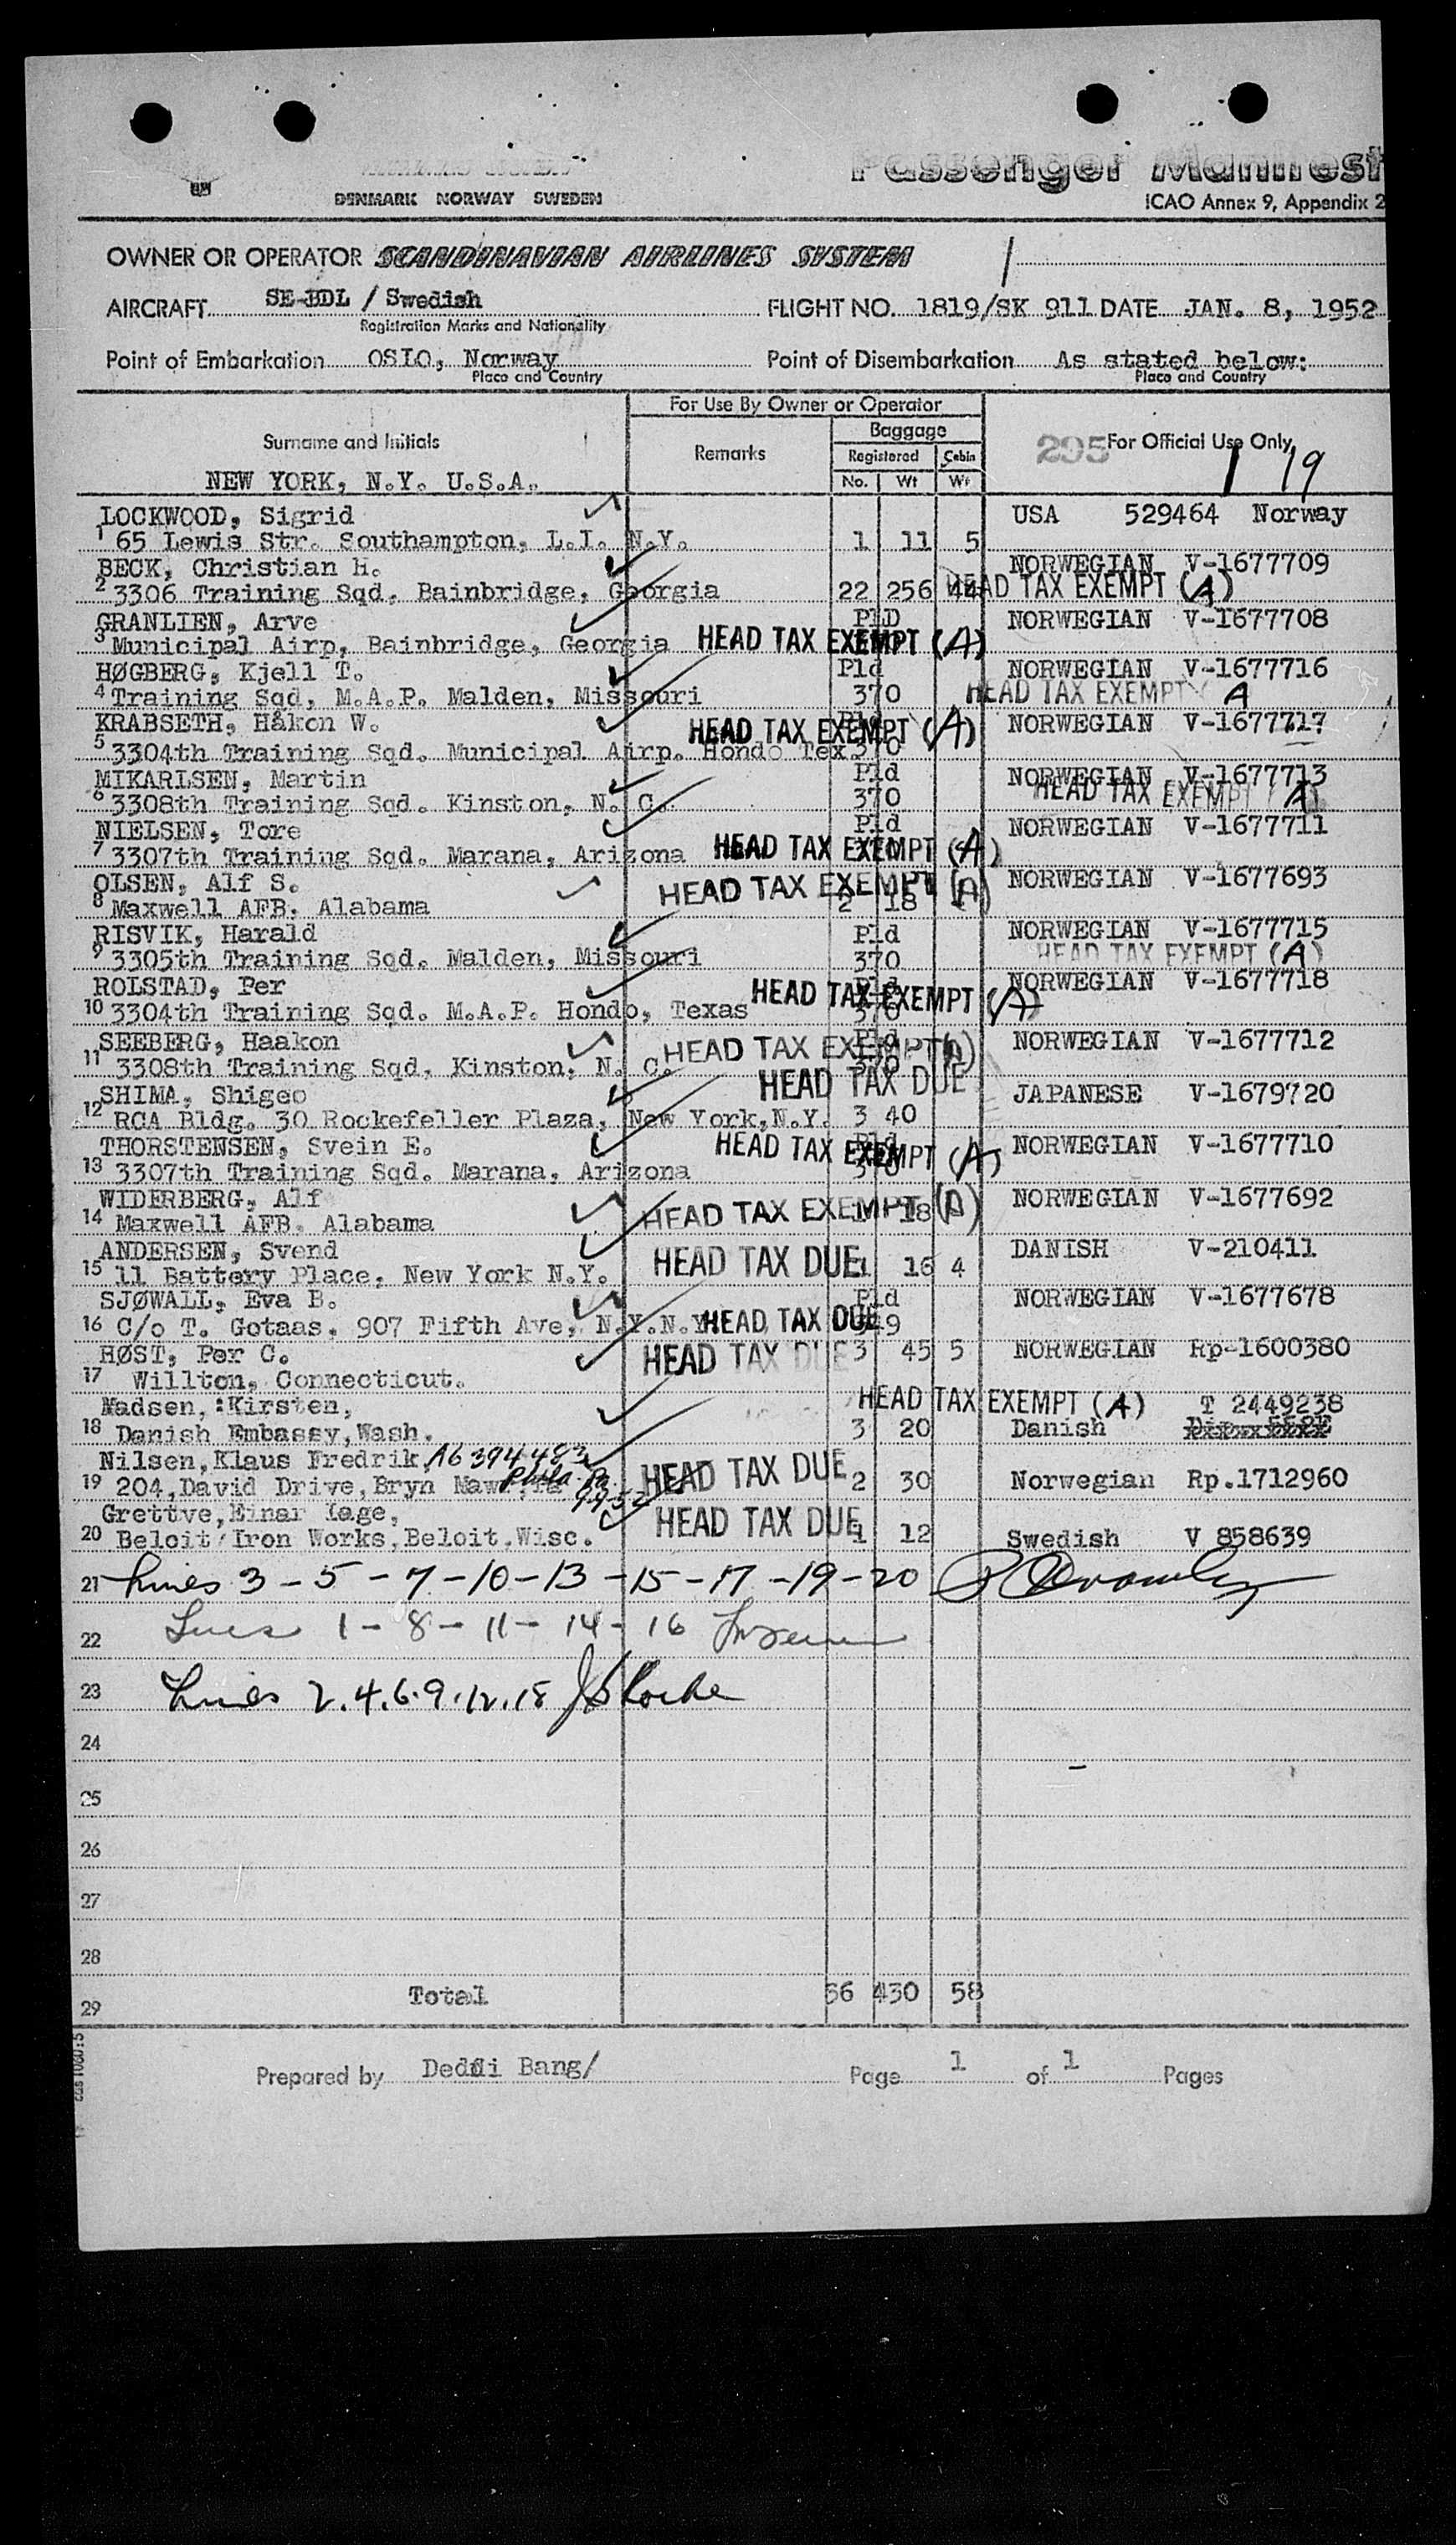 Passenger Manifest
DENMARK NORWAY SWEDEN
ICAO Annex 9, Appendix 2
OWNER OR OPERATOR SCANDINAVIAN AIRLINES SYSTEM
AIRCRAFT SE-BDL / Swedish FLIGHT NO. 1819/SK 911 DATE JAN. 8, 1952
Registration Marks and Nationality
Point of Embarkation OSLO, Norway Point of Disembarkation As stated below:
Place and Country Place and Country
For Use By Owner or Operator
Surname and Initials Remarks Baggage 295 For Official Use Only
Registered Cabin 1 19
NEW YORK, N.Y. U.S.A. No. Wt Wt
LOCKWOOD, Sigrid USA 529464 Norway
1 65 Lewis Str. Southampton, L.I. N.Y. 1 11 5
BECK, Christian H. NORWEGIAN V-1677709
2 3306 Training Sqd. Bainbridge, Georgia 22 256 44 HEAD TAX EXEMPT (A)
GRANLIEN, Arve PLD NORWEGIAN V-1677708
3 Municipal Airp, Bainbridge, Georgia HEAD TAX EXEMPT (A)
HØGBERG, Kjell T. Pld NORWEGIAN V-1677716
4 Training Sqd, M.A.P. Malden, Missouri 370 HEAD TAX EXEMPT A
KRABSETH, Håkon W. Pld HEAD TAX EXEMPT (A) NORWEGIAN V-1677717
5 3304th Training Sqd. Municipal Airp. Hondo Tex. 370
MIKARLSEN, Martin Pld NORWEGIAN V-1677713
6 3308th Training Sqd. Kinston, N. C. 370 HEAD TAX EXEMPT (A)
NIELSEN, Tore Pld NORWEGIAN V-1677711
7 3307th Training Sqd. Marana, Arizona HEAD TAX EXEMPT (A)
OLSEN, Alf S. HEAD TAX EXEMPT (A) NORWEGIAN V-1677693
8 Maxwell AFB. Alabama 2 18
RISVIK, Harald Pld NORWEGIAN V-1677715
9 3305th Training Sqd. Malden, Missouri 370 HEAD TAX EXEMPT (A)
ROLSTAD, Per Pld HEAD TAX EXEMPT (A) NORWEGIAN V-1677718
10 3304th Training Sqd. M.A.P. Hondo, Texas 370
SEEBERG, Haakon Pld HEAD TAX EXEMPT (A) NORWEGIAN V-1677712
11 3308th Training Sqd. Kinston, N. C. 370
SHIMA, Shigeo HEAD TAX DUE JAPANESE V-1679720
12 RCA Bldg. 30 Rockefeller Plaza, New York,N.Y. 3 40
THORSTENSEN, Svein E. Pld HEAD TAX EXEMPT (A) NORWEGIAN V-1677710
13 3307th Training Sqd. Marana, Arizona 370
WIDERBERG, Alf HEAD TAX EXEMPT (A) NORWEGIAN V-1677692
14 Maxwell AFB. Alabama 18
ANDERSEN, Svend HEAD TAX DUE DANISH V-210411
15 11 Battery Place, New York N.Y. 1 16 4
SJØWALL, Eva B. Pld NORWEGIAN V-1677678
16 C/o T. Gotaas, 907 Fifth Ave, N.Y.N.Y. HEAD TAX DUE
HØST, Per C. HEAD TAX DUE 3 45 5 NORWEGIAN Rp-1600380
17 Willton, Connecticut.
Madsen,:Kirsten, HEAD TAX EXEMPT (A) T 2449238
18 Danish Embassy,Wash. 3 20 Danish
Nilsen,Klaus Fredrik, A6 394 483
19 204,David Drive,Bryn Maw Phila. Pa. HEAD TAX DUE 2 30 Norwegian Rp.1712960
Grettve,Einar Aage, HEAD TAX DUE
20 Beloit Iron Works,Beloit.Wisc. 1 12 Swedish V 858639
21 Lines 3 - 5 - 7 - 10 - 13 - 15 - 17 - 19 - 20
22 Lines 1 - 8 - 11 - 14 - 16
23 Lines 2.4.6.9.12.18
24
25
26
27
28
29 Total 36 430 58
Prepared by Deddi Bang/ Page 1 of 1 Pages